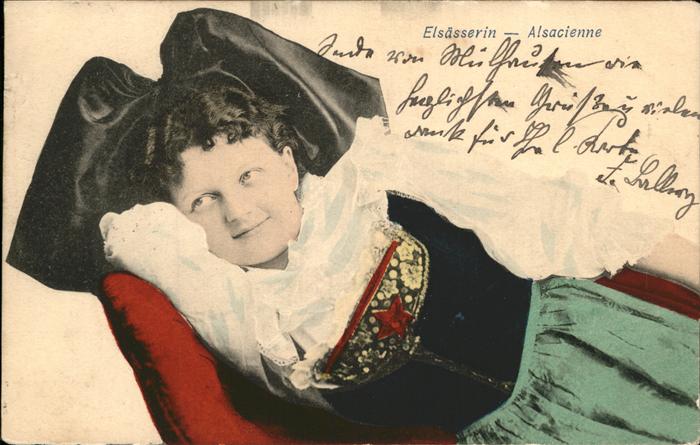 Elsässerin — Alsacienne
Sende von Mülhausen die
herzlichsten Grüße u vielen
dank für Ihre l. Karte